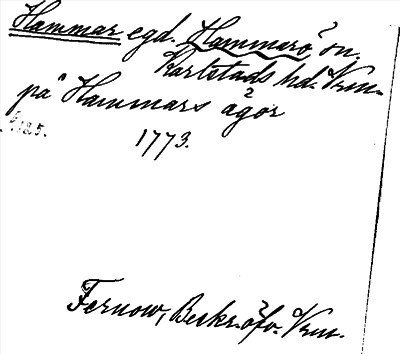 Hammar egd. Hammarö sn,
Karlstads hd. Vrm.
på Hammars ägor
s. 125.
1773.
Fernow, Beskr. öfv. Vrm.